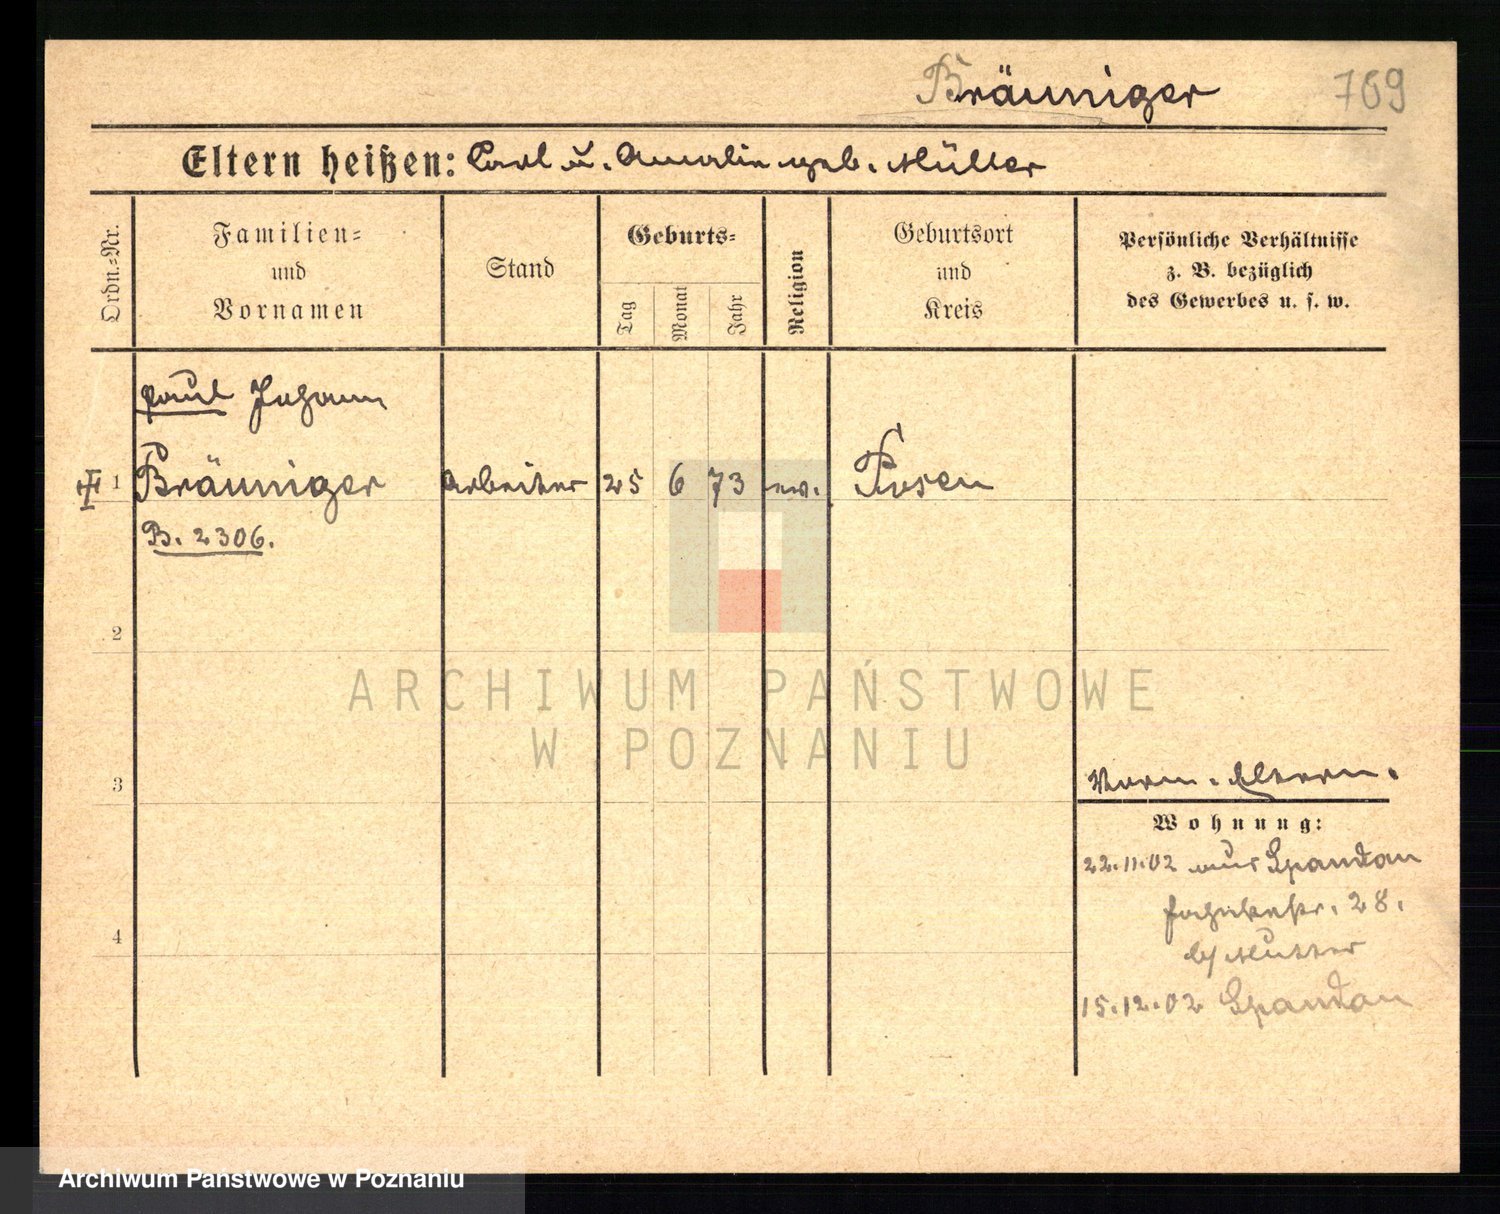 Bräuniger 709
Eltern heißen: Carl u. Amalie geb. Müller
Ordn.-Nr.
Familien-
und
Vornamen
Stand
Geburts-
Tag
Monat
Jahr
Religion
Geburtsort
und
Kreis
Persönliche Verhältnisse
z. B. bezüglich
des Gewerbes u. s. w.
Paul Johann
1 Bräuniger Arbeiter 25 6 73 ev. Posen
B. 2306.
2
ARCHIWUM PAŃSTWOWE
W POZNANIU
3
Eltern.
Wohnung:
22.11.02 aus Spandau
28.
b/ Mutter
4
15.12.02 Spandau
Archiwum Państwowe w Poznaniu